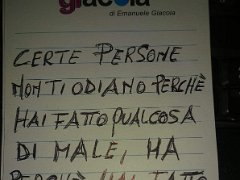 giacoia
di Emanuele Giacoia
CERTE PERSONE
NON TI ODIANO PERCHÈ
HAI FATTO QUALCOSA
DI MALE, HA
PERCHÈ HAI FATTO